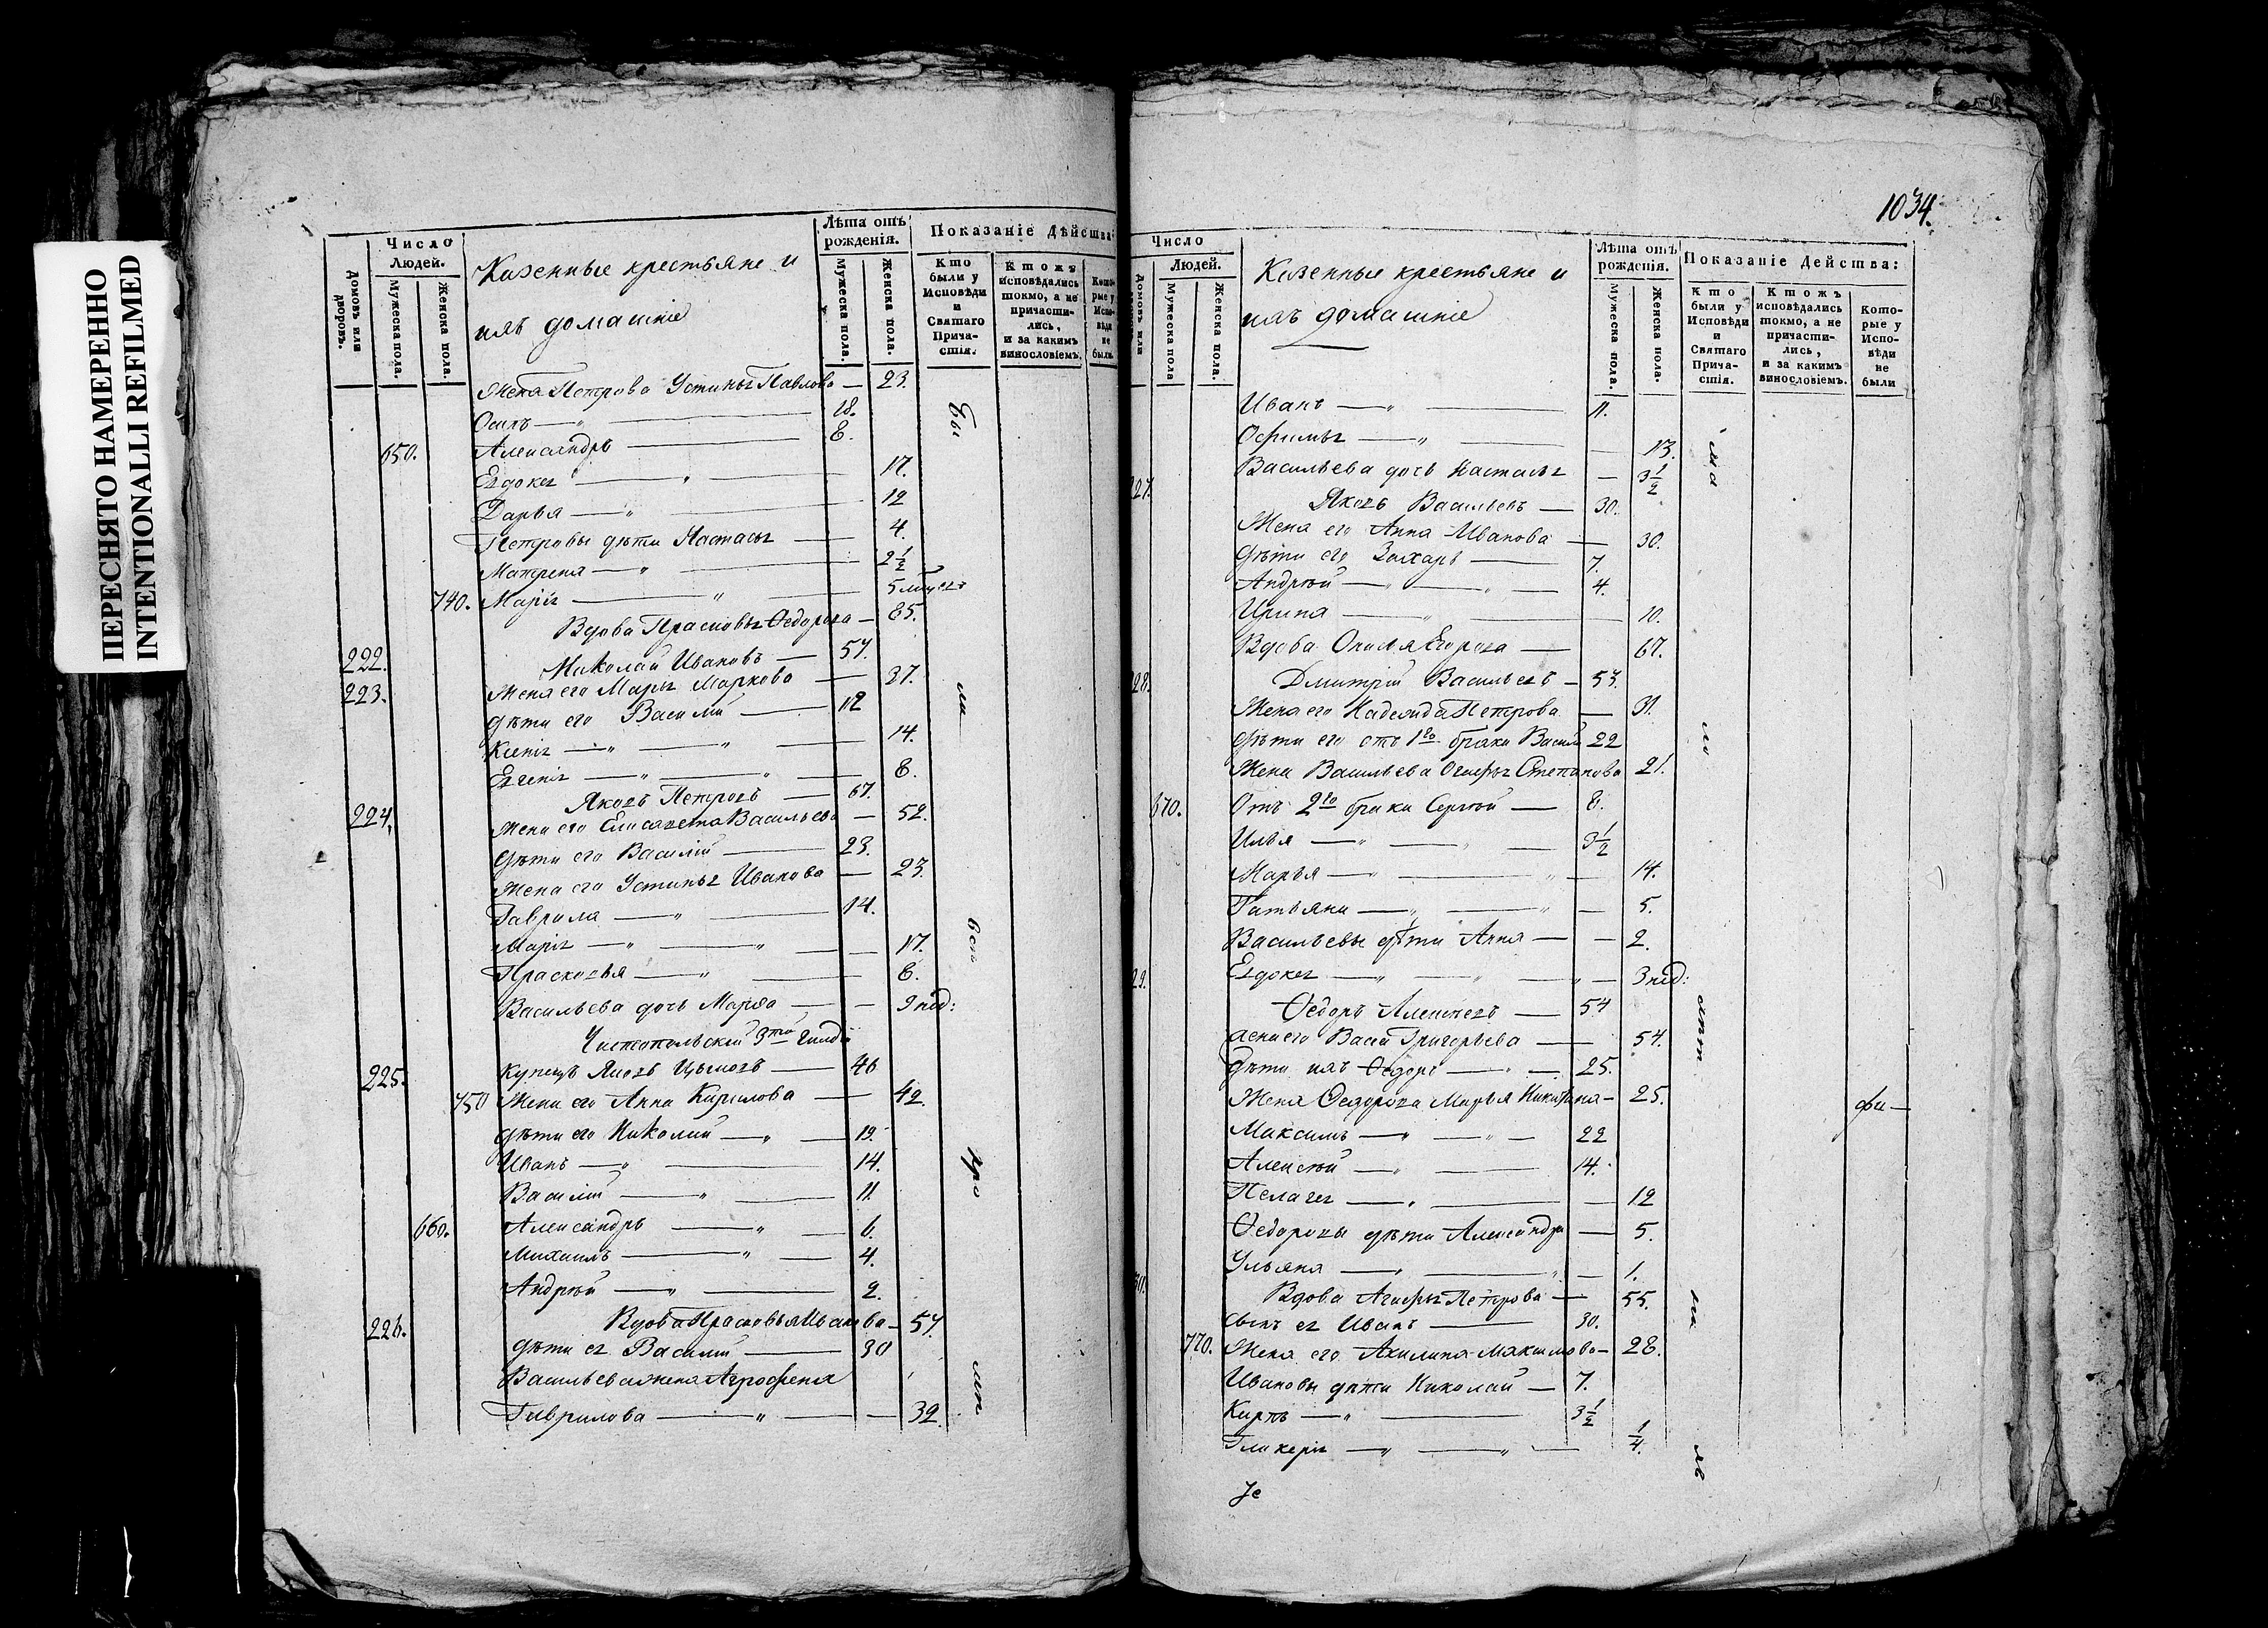 ПЕРЕСНЯТО НАМЕРЕННО
INTENTIONALLI REFILMED
Число Людей.
Домовъ или дворовъ.
Мужеска пола.
Женска пола.
Казенные крестьяне и
ихъ домашніе
Лѣта отъ рожденія.
Мужеска пола.
Женска пола.
Показаніе Дѣйства:
Кто были у Исповѣди и Святаго Прича-стія.
Ктожъ исповѣдались токмо, а не причасти-лись, и за какимъ винословіемъ.
Кото-рые у Испо-вѣди не были
Жена Петрова Устинья Павлова — 23.
Осипъ — " — 18.
650. Александръ — 8.
Евдокея — " — 17.
Дарья — " — 12
Петровы дѣти Настасья — 4.
Матрена — " — 2 1/2
740. Марія — " — 5 мѣсец:
Вдова Прасковья Ѳедорова — 85.
222. Николай Ивановъ — 57.
223. Жена его Марья Маркова — 37.
дѣти его Василій — 12
Ксенія — " — " — 14.
Евгенія — " — " — 8.
Яковъ Петровъ — 67.
224. Жена его Елисавета Васильева — 52.
Дѣти его Василій — 23.
Жена его Устинья Иванова — 23.
Гаврила — " — 14.
Марія — " — " — 17.
Прасковья — " — 6.
Васильева дочь Марья — 9 нед:
Чистопольскій 3тей Гилді
225. Купецъ Яковъ — 46
750 Жена его Анна Кирилова — 42.
Дѣти его Николай — " — 19.
Иванъ — " — 14.
Василій — " — 11.
660. Александръ — " — 6.
Михаилъ — " — 4.
Андрей — " — 2.
226. Вдова Прасковья Иванова — 57.
Дѣти ея Василій — 30
Васильева жена Агрофена
Гаврилова — " — 32.
бы
ли
всѣ
про
1034.
Число
Людей.
Домовъ или
Мужеска пола
Женска пола.
Казенные крестьяне и
ихъ домашніе
Лѣта отъ рожденія.
Мужеска пола.
Женска пола.
Показаніе Действа:
Кто были у Исповѣди и Святаго Прича-стія.
Ктожъ исповѣдались токмо, а не причасти-лись, и за какимъ винословіемъ.
Кото-рые у Испо-вѣди не были
Иванъ — " — 11.
Офимья — " — 13.
Васильева дочь Настасья — 3 1/2
27. Яковъ Васильевъ — 30.
Жена его Анна Иванова — 30.
Дѣти его Захаръ — 7.
Андрей — " — " — 4.
Ирина — " — 10.
Вдова Егорова — 67.
28. Дмитрій Васильевъ — 53.
Жена его Надежда Петрова — 31.
Дѣти его отъ 1го брака Василій 22
Жена Васильева Агафья Степанова 21.
670. Отъ 2го брака Сергѣй — 8.
Илья — " — " — 3 1/2
Марья — " — " — 14.
Татьяна — " — " — 5.
Васильевы дѣти Анна — 2.
Евдокея — " — " — " — 3 нед:
29. Ѳедоръ Алексѣевъ — 54
Жена его Васса Григорьева — 54.
Дѣти ихъ Ѳедоръ — " — 25.
Жена Ѳедорова Марья Никитина — 25.
Максимъ — " — " — 22
Алексѣй — " — 14.
Пелагея — " — 12
Ѳедоровы дѣти Александра — 5.
Ульяна — " — " — 1.
Вдова Агафья Петрова — 55.
Сынъ ея Иванъ — 30.
770. Жена его Акилина Максимова — 28.
Ивановы дѣти Николай — 7.
Карпъ — " — 3 1/2
Гликерія — " — " — 1/4.